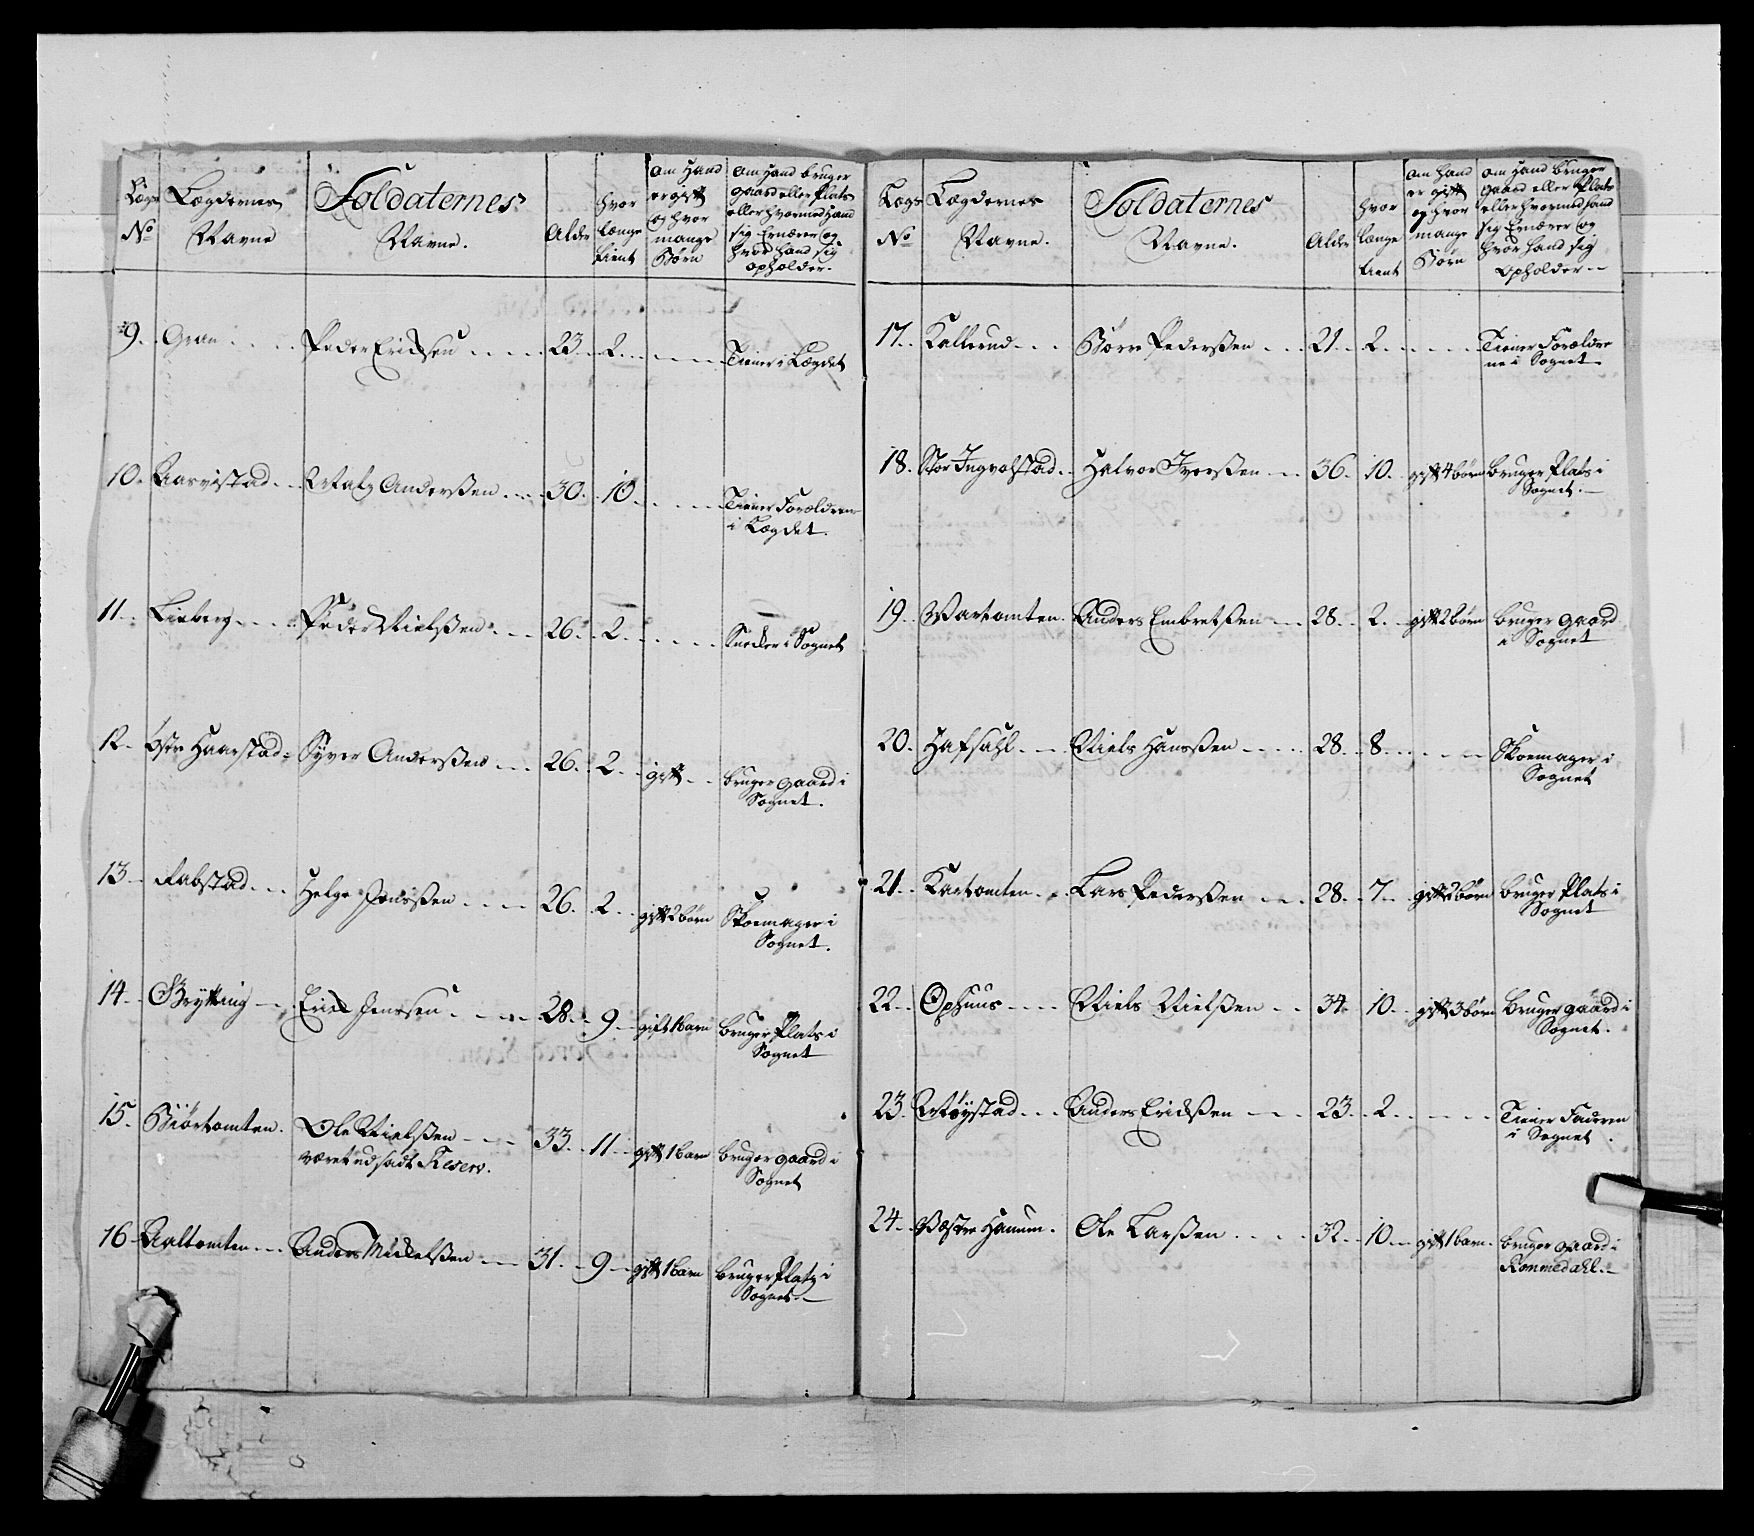 Lægs No
Lægdernes Navne
Soldaternes Navne.
Alder
hvor længe tient
om Hand er gift og hvor mange Börn
om Hand bruger gaard eller Plats eller hvormed Hand sig Ernærer og hvor Hand sig opholder.
9. Gran Peder Erichsen 23. 2. Tiener i Lægdet
10. Aarvistad Mats Anderßen 30. 10. Tiener Forældrene i Lægdet.
11. Lieberg Peder Nielßen 26. 2. Snedker i Sognet
12. Östre Haarstad Syver Anderßen 26. 2. gift bruger gaard i Sognet.
13. Rabstad Helge Jonsßen 26. 2. gift 2 börn Skoemager i Sognet.
14. Brytting Erich Jenssen 28. 9. gift 1 barn bruger Plats i Sognet
15. Biörtomten. Ole Nielßen 33. 11. gift 1 barn bruger gaard i Sognet
været udsadt Reserv.
16. Aaltomten Anders Mickelßen 31. 9. gift 1 barn bruger Plats i Sognet.
Lægs No
Lægdernes Navne.
Soldaternes Navne.
Alder
hvor længe tient
om hand er gift og hvor mange Börn
om Hand bruger gaard eller Plats eller hvormed hand sig Ernærer og hvor hand sig Opholder
17. Kallerud Börre Pederßen 21. 2. Tiener Forældrene i Sognet
18. Stor Ingvolstad Halvor Iverßen 36. 10. gift 4 börn bruger Plats i Sognet.
19. Vartomten Anders Embretßen 28. 2. gift 2 börn bruger gaard i Sognet
20. Hafsahl Niels Hansßen 28. 8. Skoemager i Sognet
21. Kartomten Lars Pederßen 28. 7. gift 2 börn bruger Plats i Sognet
22. Ophuus Niels Nielßen 34. 10. gift 3 börn bruger gaard i Sognet.
23. Möystad Anders Erichßen 23. 2. Tiener Faderen i Sognet.
24. Væstre Hanum. Ole Larßen 32. 10. gift 1 barn. bruger gaard i Rommedahl.